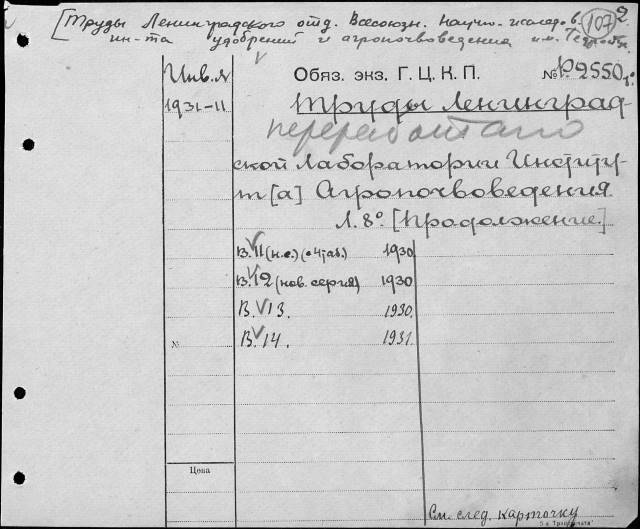 [Труды Ленинградского отд. Всесоюзн. Научн.-исслед.
ин-та удобрений и агропочвоведения им.
107
2
Инв. №
Обяз. экз. Г. Ц. К. П.
№ Р2550г.
1931-11
Труды Ленинград-
переработано
ской Лаборатории Институ-
т[а] Агропочвоведения.
Л. 8°. [Продолжение.]
В. 11 (н.с.) (с 4 таб.) 1930
В. 12 (нов. серия) 1930
В. 13. 1930.
В. 14. 1931.
№
Цена
См. след. карточку